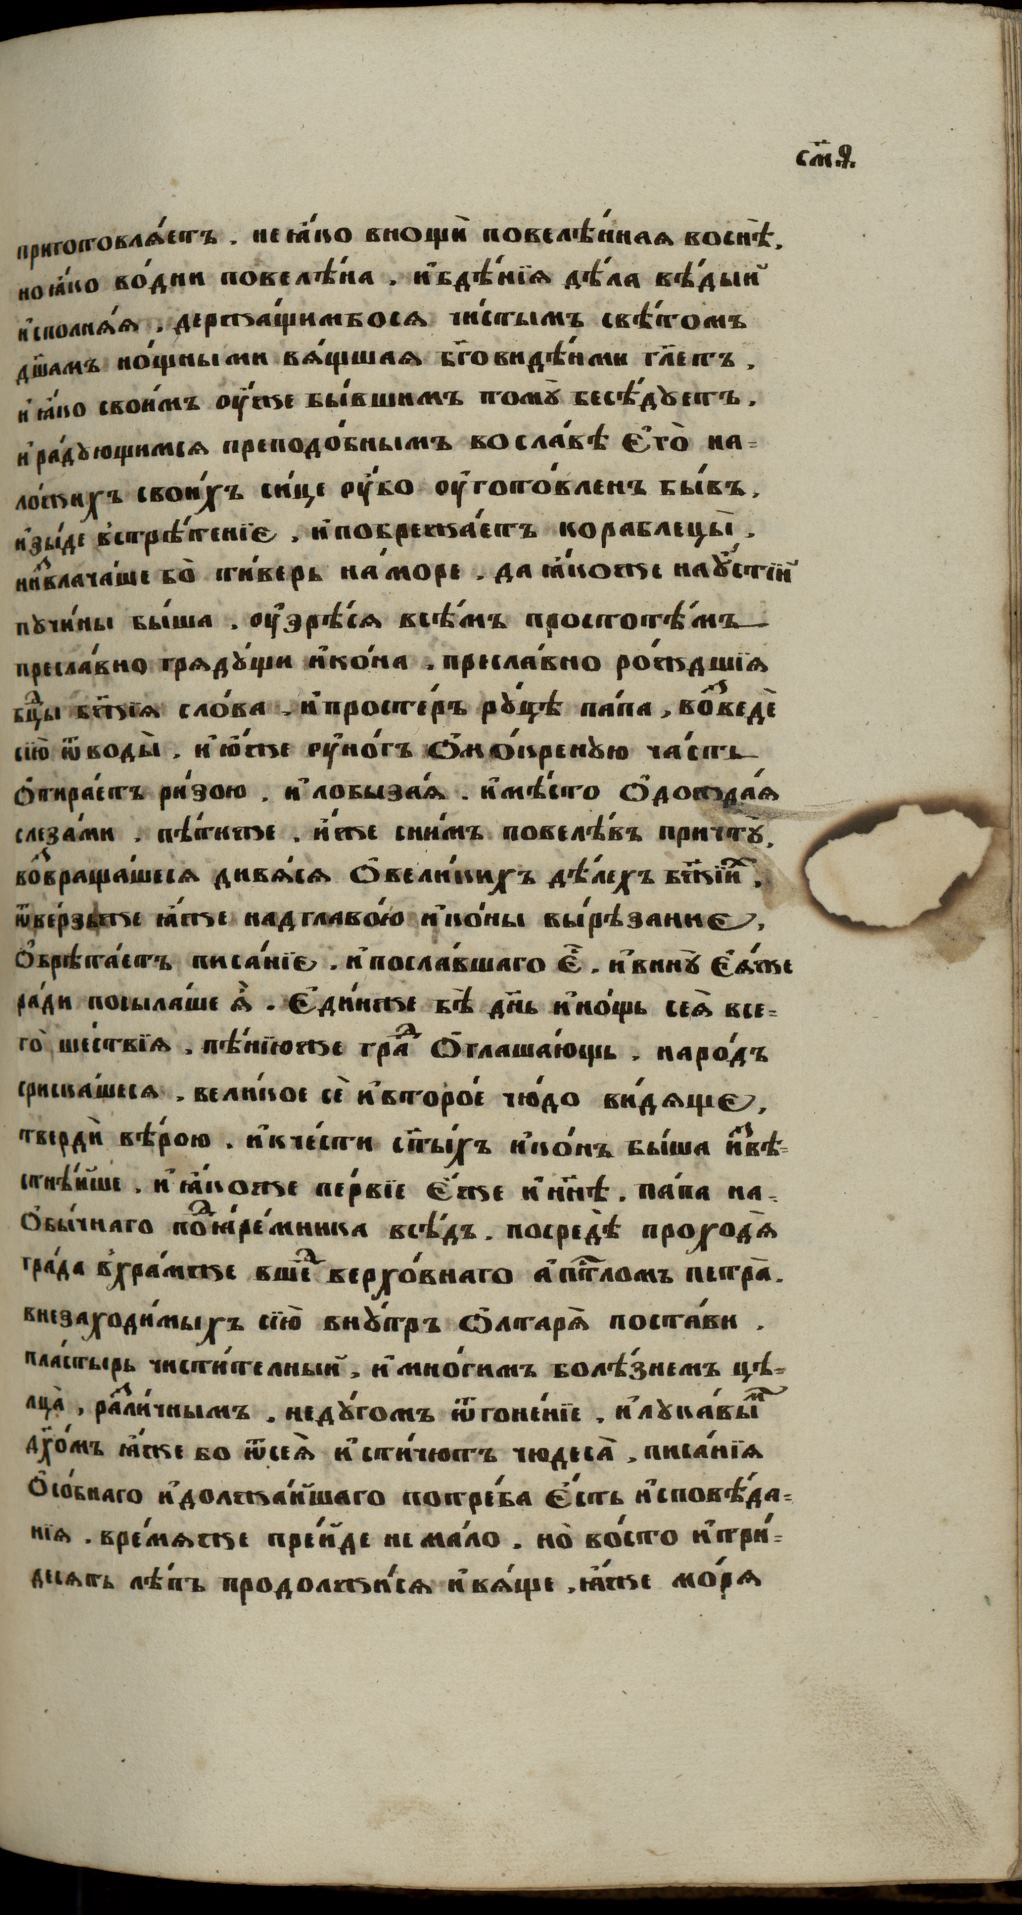 см҃ѳ.
приготовлѧ́етъ . не ꙗ́ко внощѝ повелѣ́нная воснѣ̀,
но ꙗ́ко во́дни повелѣ́на . и҆бдѣ́нїѧ дѣ́ла вѣ́дый
и҆сполнѧ́ѧ . держа́щимбосѧ чи́стымъ свѣ́томъ
дш҃амъ но́щными вѧ́щшая бг҃овидѣ́нми гл҃етъ .
и҆ ꙗ́ко свои́мъ оу҆́же бы́вшимъ томꙋ̀ бесѣ́дꙋетъ .
и҆ ра́дꙋющимсѧ преподо́бнымъ вославѣ Є҆гѡ̀ на=
ло́жихъ свои́хъ си́це оу҆́бо оу҆гото́вленъ бы́въ .
и҆зы́де встрѣ́тенїе , и҆побрежа́етъ кораблецы̀ .
ни́звлачаше бо̀ ти́верь на́море . да ꙗ҆́коже наꙋ҆́стїй
пꙋчи́ны бы́ша . оу҆зрѣ́сѧ всѣ́мъ простотѣ́мъ
пресла́вно грѧдꙋ́щи и҆ко́на . пресла́вно ро́ждшїѧ
бц҃ды бж҃їѧ сло́ва . и҆простер́ъ рꙋ́цѣ па́па , во́зведѐ
сїю̀ ѿводы̀ . и҆ ю҆́же оу҆но́гъ ѡ҆мо́кренꙋю ча́сть
ѻ҆тира́етъ ри́зою . и҆ лобыза́ѧ . и҆мѣ́сто ѻ҆дожда́ѧ
слеза́ми . пѣ́тиже . и҆́же сни́мъ повелѣ́въ при́чтꙋ̀ .
во́звращашесѧ дивѧ́сѧ ѻ҆вели́кихъ дѣ́лехъ бж҃їи́хъ .
ѿве́рзъже ꙗ҆́же надглаво́ю и҆ко́ны вы́рѣзание ,
ѻ҆брѣта́етъ писа́нїе . и҆посла́вшаго є҆̀ . и҆винꙋ̀ Є҆ѧ́же
ра́ди посыла́ше ѧ҆̀ . Є҆ди́нже бѣ̀ дн҃ь и҆но́щь сеѧ̀ все=
го̀ ше́ствїѧ . пѣ́нїюже гра́дъ ѻ҆глаша́ющь . наро́дъ
сриска́шесѧ . вели́кое сѐ и҆второ́е чю́до ви́дѧще ,
тве́рди вѣ́рою . и҆кче́сти ст҃ы́хъ и҆ко́нъ бы́ша и҆звѣ=
стнѣ́йше . и҆ ꙗ҆́коже пе́рвїе Є҆́же и҆ нн҃ѣ . па́па на=
ѻ҆бы́чнаго под̾ꙗре́мника всѣ́дъ . посредѣ̀ проходѧ̀
гра́да в̾хра́мже вше́дъ верхо́внаго а҆пⷭ҇толомъ петра̀ .
внезаходи́мыхъ сїю̀ внꙋ́тръ ѻ҆лтарѧ̀ поста́ви .
пла́стырь чисти́телный , и҆мно́гимъ болѣ́знемъ цѣ=
лца̀ , разли́чнымъ . недꙋ́гомъ ѿгоне́нїе . и҆ лꙋка́вымъ
дꙋ́хомъ ꙗ҆́же бо ѿсеѧ̀ и҆стичю́тъ чюдеса̀ . писа́нїѧ
ѻ҆со́бнаго и҆должа́йшаго потре́ба Є҆́сть и҆сповѣ́да=
нїѧ . вре́мѧже пре́йде не ма́ло . но̀ во́сто и҆три́=
десѧть лѣ́тъ продолжи́сѧ и҆вѧ́ще , ꙗ҆́же мо́рѧ